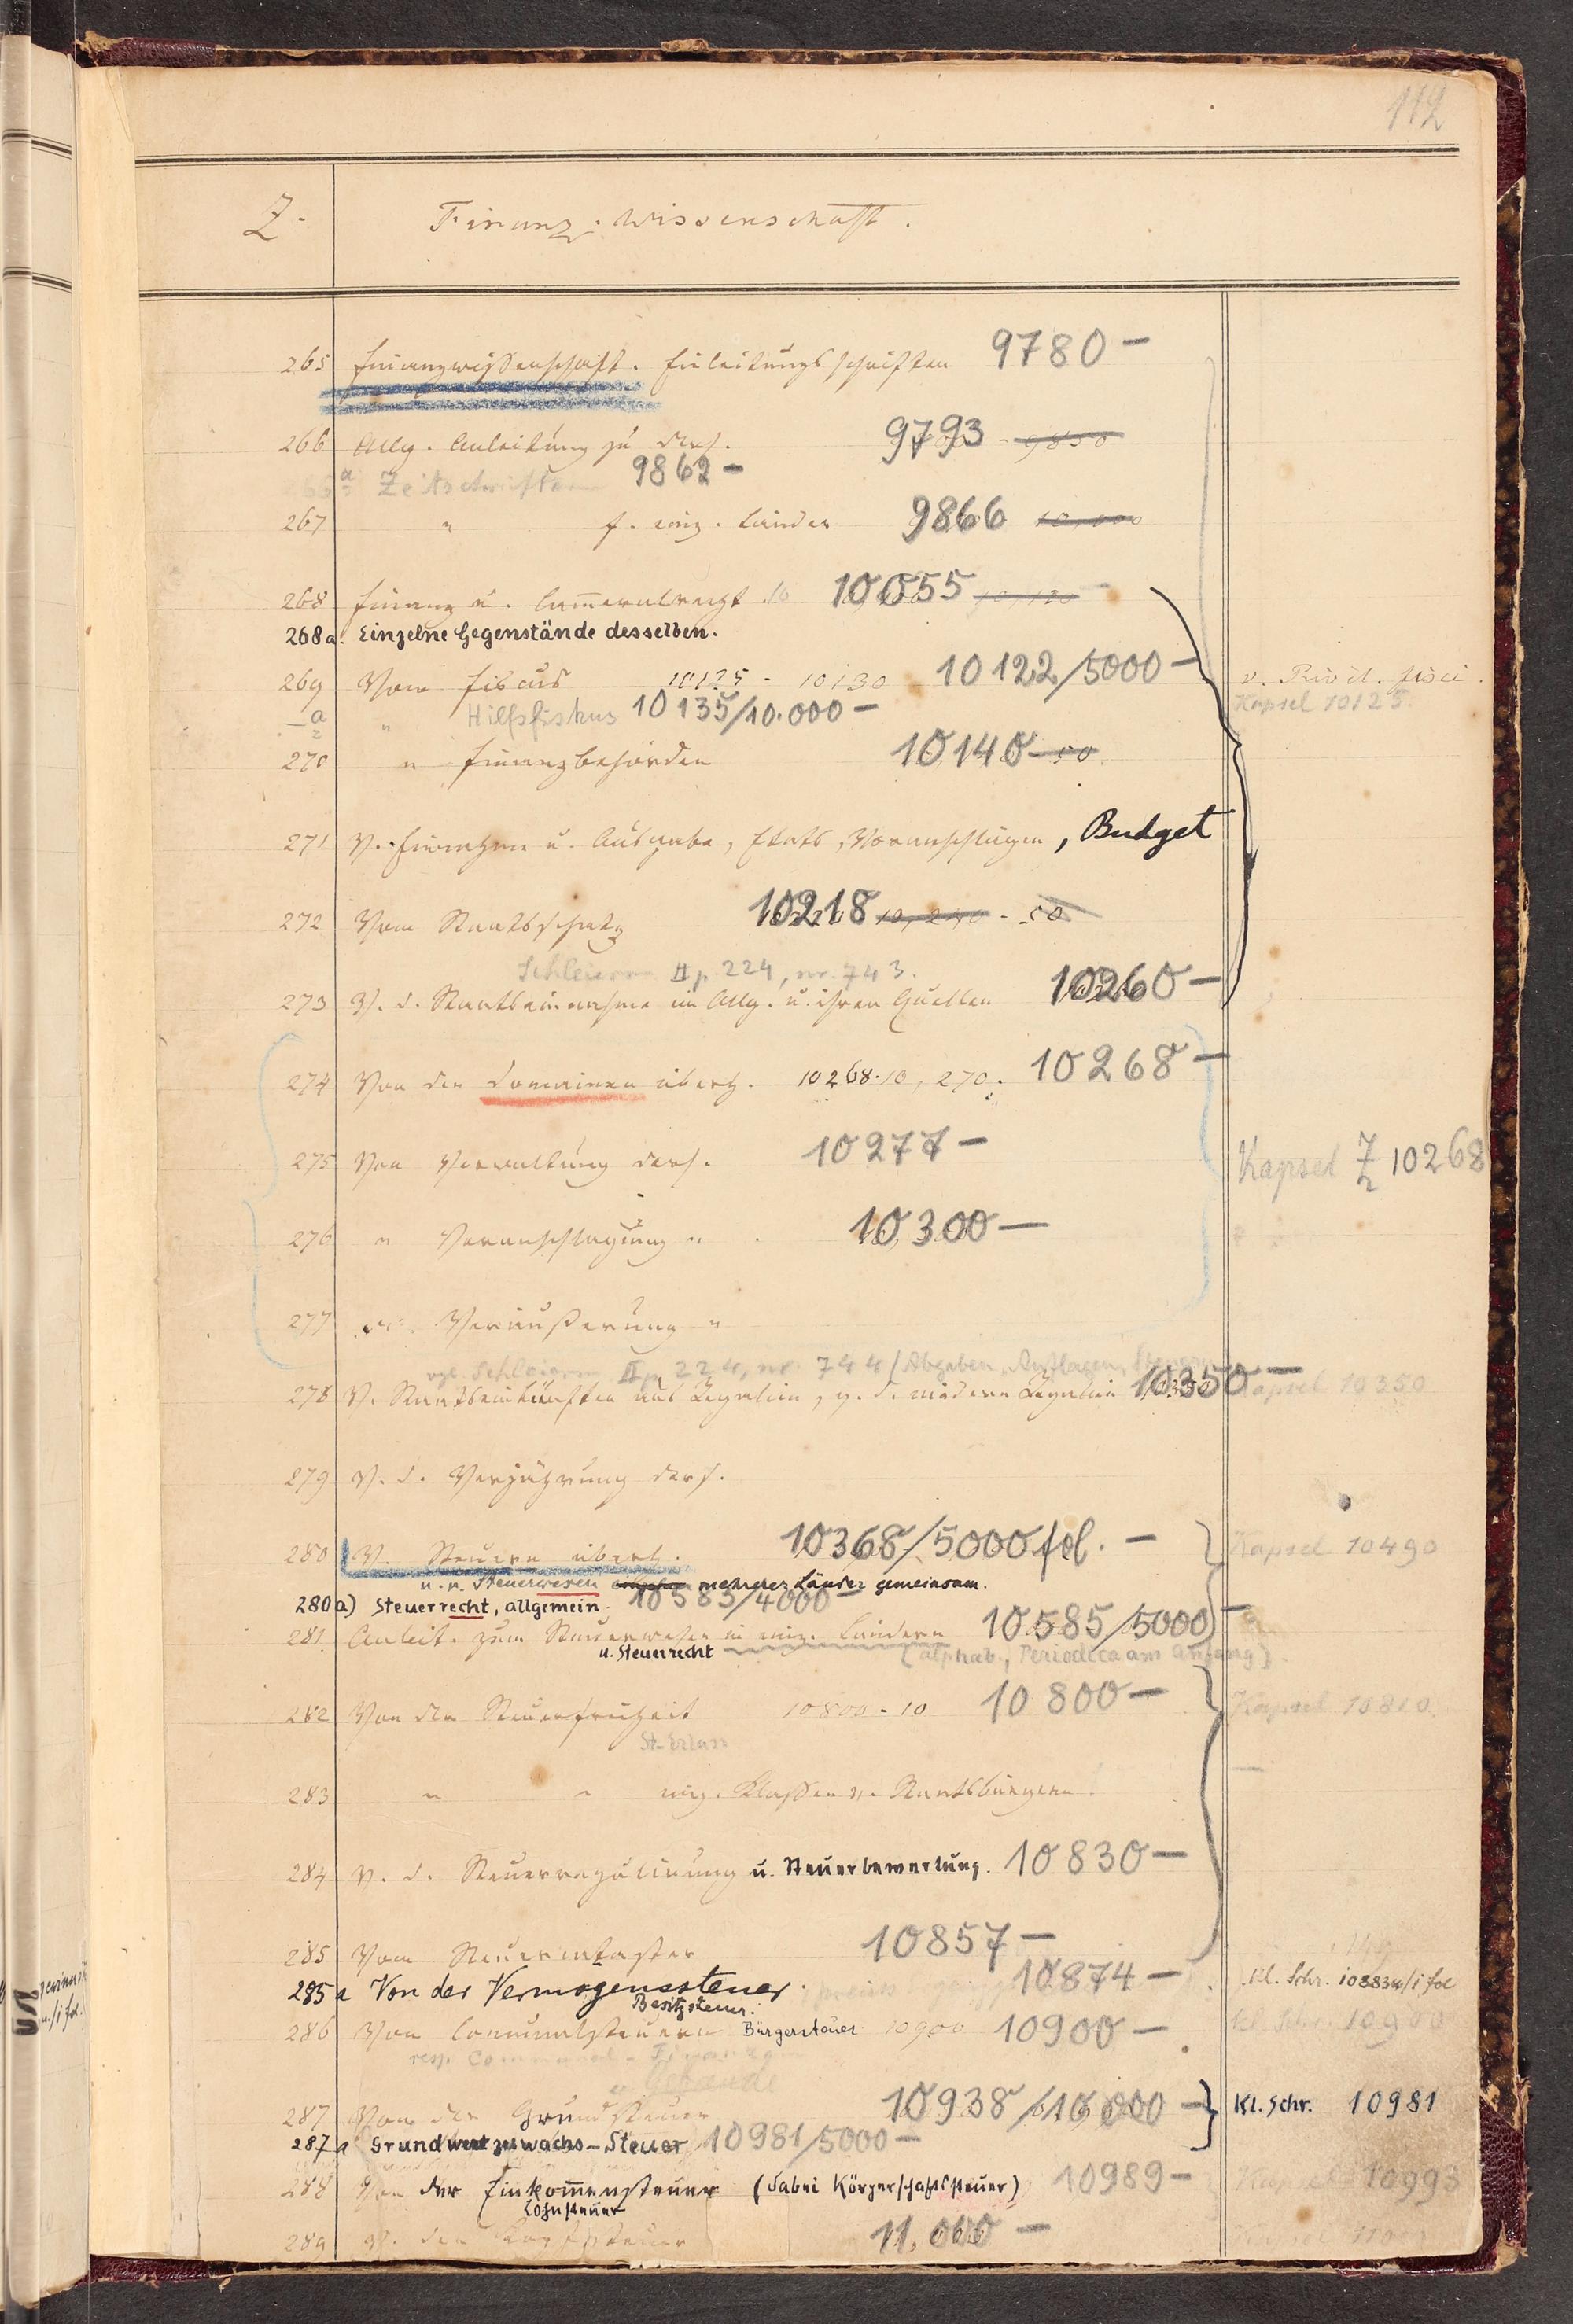 112
Z. Finanz-Wissenschaft.
265 Finanzwissenschaft. Einleitungsschriften 9780 –
266 Allg. Anleitung zu ders. 9793 - 9850
a Zeitschriften 9862 –
267 " f. einz. Länder 9866 10,000
268 Finanz u. Cameralrecht 10055 10,120
268a. Einzelne Gegenstände desselben.
269 Vom Fiscus 10125 - 10130 10122/5000 – v. Privil. fisci.
a " Hilfsfiskus 10135/10.000 – Kapsel 10125.
270 " Finanzbehörden 10140 – 50
271 V. Einnahme u. Ausgabe, Etats, Voranschlägen, Budget
272 Vom Staatsschatz 10218 10,240 - 50
Schleierm. II p. 224, nr. 743.
273 V. d. Staatseinnahme im Allg. u. ihren Quellen 10260 –
274 Von den Domainen überh. 10268-10,270. 10268 –
275 Von Verwaltung ders. 10277 – Kapsel Z 10268
276 " Veranschlagung " 10300 –
277 Veräußerung "
vgl. Schleierm. II p. 224, nr. 744 / Abgaben, Auflagen, Steuern
278 V. Staatseinkünften aus Regalien, v. d. niedern Regalien 10350 – Kapsel 10350
279 V. d. Verjährung ders.
280 V. Steuern überh. 10368/5000 fol. – Kapsel 10490
u. v. Steuerwesen mehrerer Länder gemeinsam.
280a) Steuerrecht, allgemein. 10583/4000
281 Anleit. zum Steuerwesen in einz. Ländern 10585/5000 –
u. Steuerrecht (alphab., Periodica am Anfang).
282 Von der Steuerfreiheit 10800 - 10 10800 – Kapsel 10810.
St-Erlass
283 " " einz. Klassen v. Staatsbürgern.
284 V. d. Steuerregulirung u. Steuerbewertung. 10830 –
285 Vom Steuerkataster 10857 –
285a Von der Vermögenssteuer. 10874 – Kl. Schr. 10883m/i fol
Besitzsteuer.
286 Von Communalsteuern Bürgersteuer 10900 10900 – Kl. Schr. 10900
resp. Communal-Finanzen
u. Gebäude
287 Von der Grundsteuer 10938/10000 – Kl. Schr. 10981
287a Grundwertzuwachs-Steuer 10981/5000 –
288 Von der Einkommensteuer (dabei Körperschaftssteuer) 10989 – Kapsel 10993
Lohnsteuer
289 V. der 11.000 –